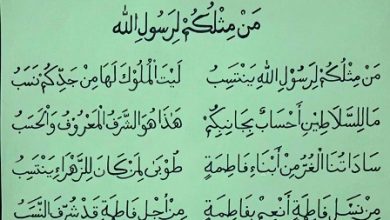 مَنْ مِثْلُكُمْ لِرَسُولِ الله
مَنْ مِثْلُكُمْ لِرَسُوْلِ اللهِ يَنْتَسِبُ لَيْتَ الْمُلُوْكَ لَهَا مِنْ جَدِّكُمْ نَسَبُ
مَالِلسَّلَاطِيْنِ أَحْسَابٌ بِجَانِبِكُمْ هَذَا هُوَ الشَّرَفُ الْمَعْرُوْفُ وَالْحَسَبُ
سَادَاتُنَا الْغُرُّ مِنْ أَبْنَاءِ فَاطِمَةٍ طُوْبَى لِمَنْ كَانَ لِلزَّهْرَاءِ يَنْتَسِبُ
مِنْ نَسْلِ فَاطِمَةٍ أَنْعِمْ بِفَاطِمَةٍ مِنْ أَجْلِ فَاطِمَةٍ قَدْ شَرُفَ النَّسَبُ